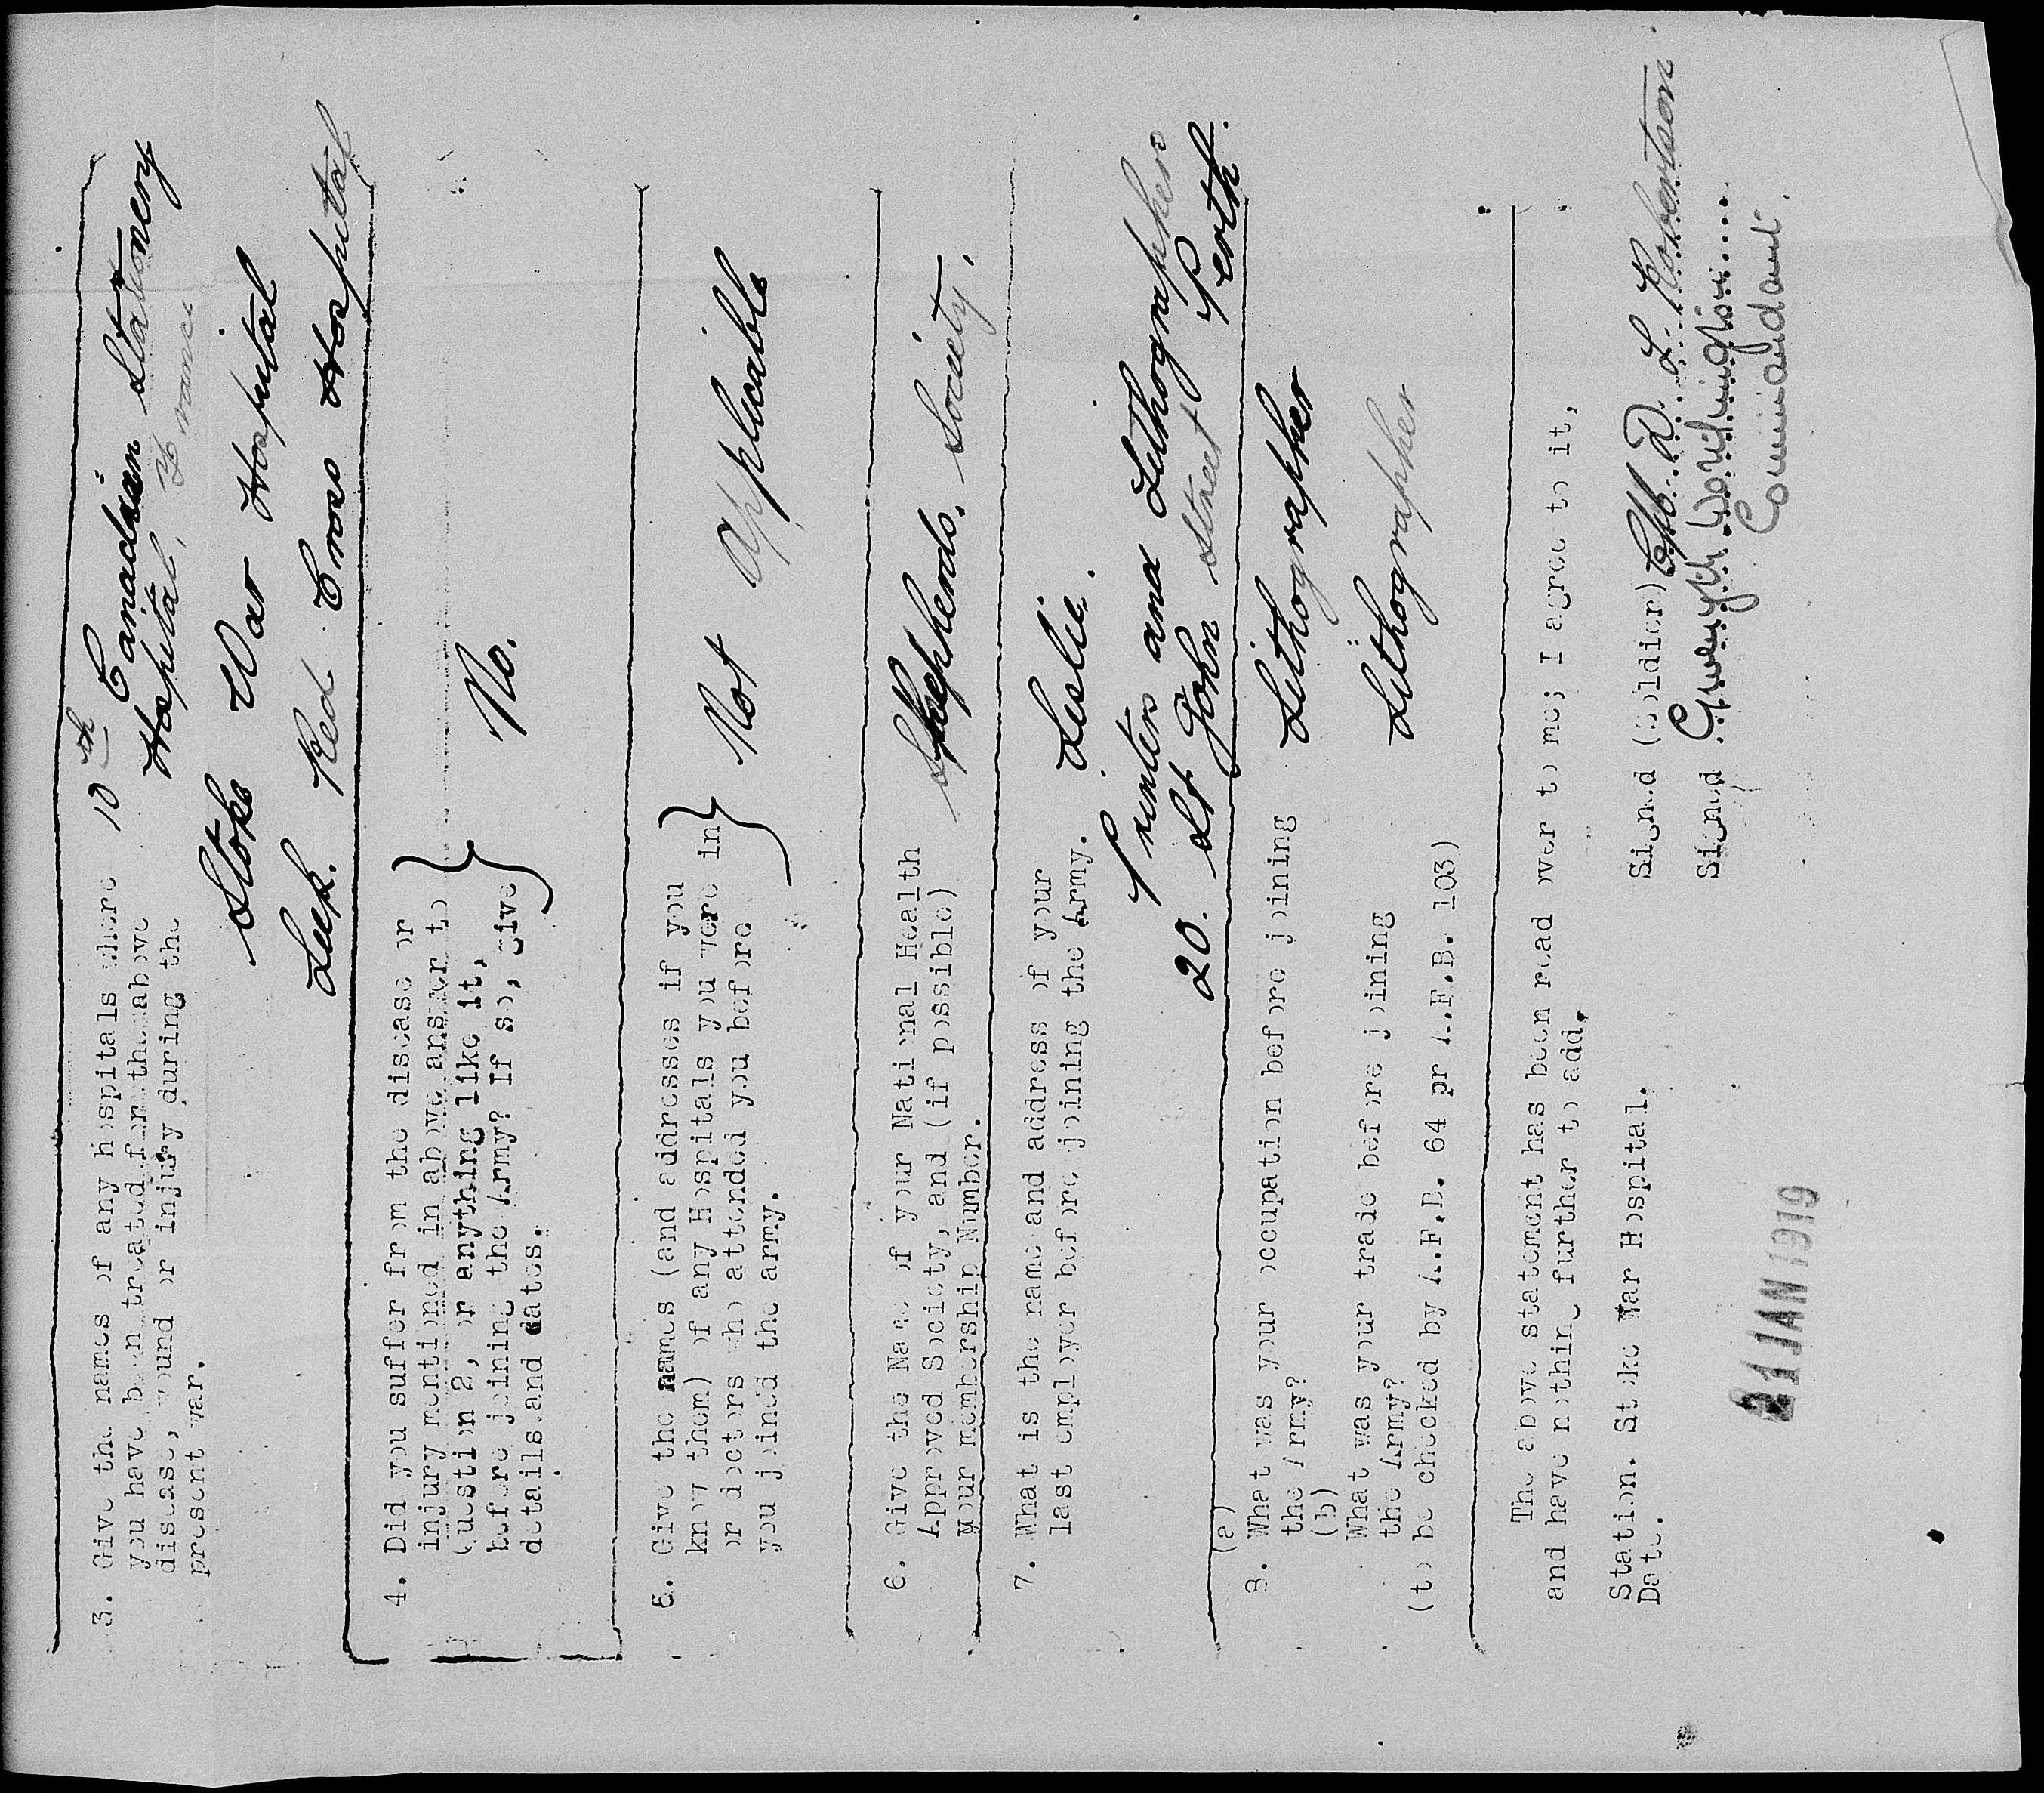 3. Give the names of any hospitals where
you have been treated for the above
disease, wound or injury during the
present war.
10th Canadian Stationery
Hospital, France
Stoke War Hospital
Leek. Red Cross Hospital
4. Did you suffer from the disease or
injury mentioned in above answer to
Question 2, or anything like it,
before joining the Army? If so, give
details and dates.
No.
5. Give the names (and addresses if you
know them) of any Hospitals you were in
or doctors who attended you before
you joined the army.
Not Applicable
6. Give the Name of your National Health
Approved Society, and (if possible)
your membership Number.
Shepherds. Society.
7. What is the name and address of your
last employer before joining the Army.
Leslie.
Printers and Lithographers
20. St John Street Perth.
(a)
8. What was your occupation before joining
the Army?
Lithographer
(b)
What was your trade before joining
the Army?
Lithographer
(to be checked by A.F.B. 64 or A.F.B. 103)
The above statement has been read over to me; I agree to it,
and have nothing further to add.
Station. Stoke War Hospital.
Date.
Signed (Soldier) Cpl. D. L. Robertson
Signed Gwenyth Worthington
Commandant.
21 JAN 1919